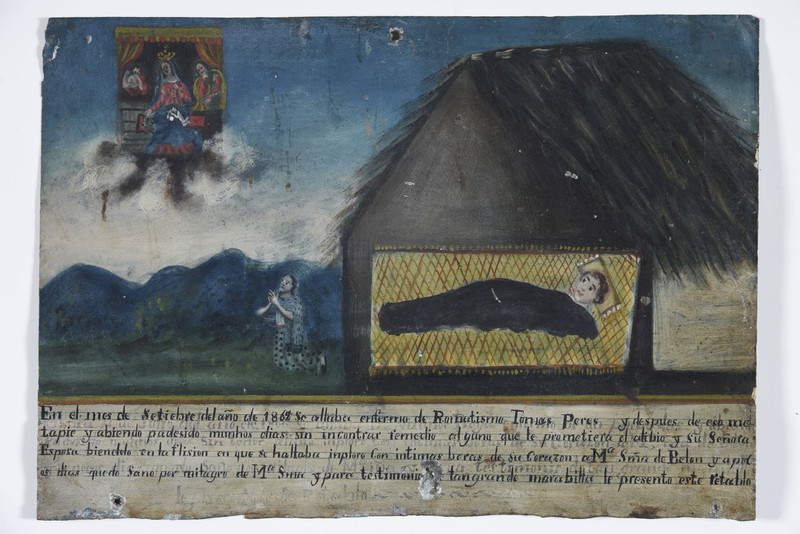 En el mes de Setiebre del año de 1862 Se allaba enfermo de Romatismo Tomas Peres y despues de eso me
tapie y abiendo padesido munhos dias sin incontrar remedio alguno que le prometiera el alibio y su Señora
Esposa biendolo en la flision en que se hallaba inploro Con intimas beras de su Corazon a Mª Sma de Belen y apoc
os dias quedo Sano por milagro de Mª Sma y para testimonio de tangrande marabilla le presento este retablo